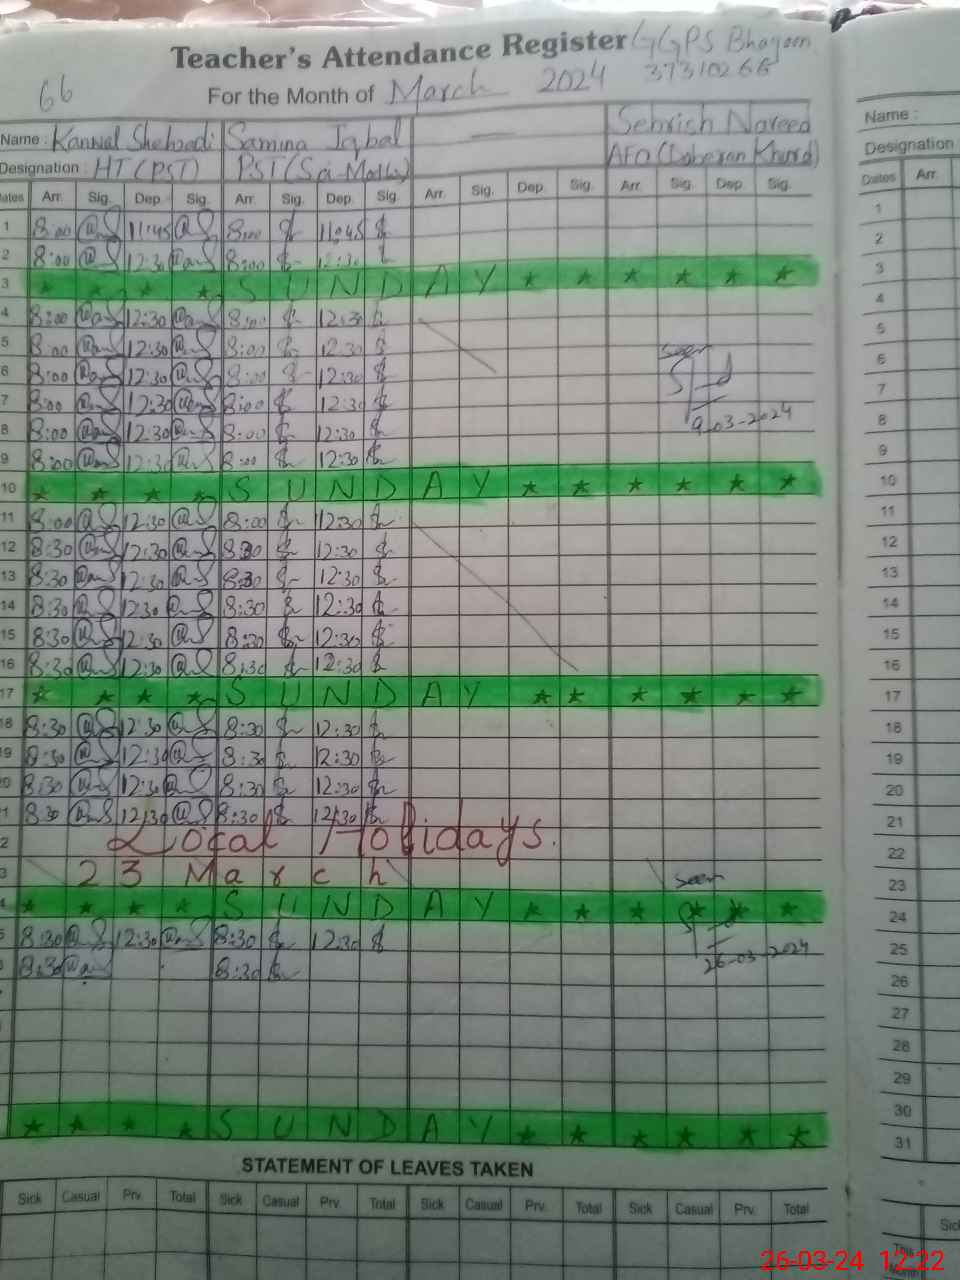 Teacher's Attendance Register GGPS Bhagoon
66 For the Month of March 2024 37310266
Name : Kanwal Shehzadi Samina Iqbal Sehrish Naveed
Designation : HT (PST) PST (Sci-Math) AEO (Doberan Khurd)
Dates Arr. Sig. Dep. Sig. Arr. Sig. Dep. Sig. Arr. Sig. Dep. Sig. Arr. Sig. Dep. Sig.
1 8:00 11:45 8:00 11:45
2 8:00 12:30 8:00 12:30
3 SUNDAY
4 8:00 12:30 8:00 12:30
5 8:00 12:30 8:00 12:30
6 8:00 12:30 8:00 12:30 seen
7 8:00 12:30 8:00 12:30
8 8:00 12:30 8:00 12:30 9-03-2024
9 8:00 12:30 8:00 12:30
10 SUNDAY
11 8:00 12:30 8:00 12:30
12 8:30 12:30 8:30 12:30
13 8:30 12:30 8:30 12:30
14 8:30 12:30 8:30 12:30
15 8:30 12:30 8:30 12:30
16 8:30 12:30 8:30 12:30
17 SUNDAY
18 8:30 12:30 8:30 12:30
19 8:30 12:30 8:30 12:30
20 8:30 12:30 8:30 12:30
21 8:30 12:30 8:30 12:30
2 Local Holidays.
3 23 March seen
4 SUNDAY
5 8:30 12:30 8:30 12:30
8:30 8:30 26-03-2024
SUNDAY
STATEMENT OF LEAVES TAKEN
Sick Casual Prv. Total Sick Casual Prv. Total Sick Casual Prv. Total Sick Casual Prv. Total
Name :
Designation
Dates Arr.
1
2
3
4
5
6
7
8
9
10
11
12
13
14
15
16
17
18
19
20
21
22
23
24
25
26
27
28
29
30
31
Sick
This
Month
26-03-24 12:22